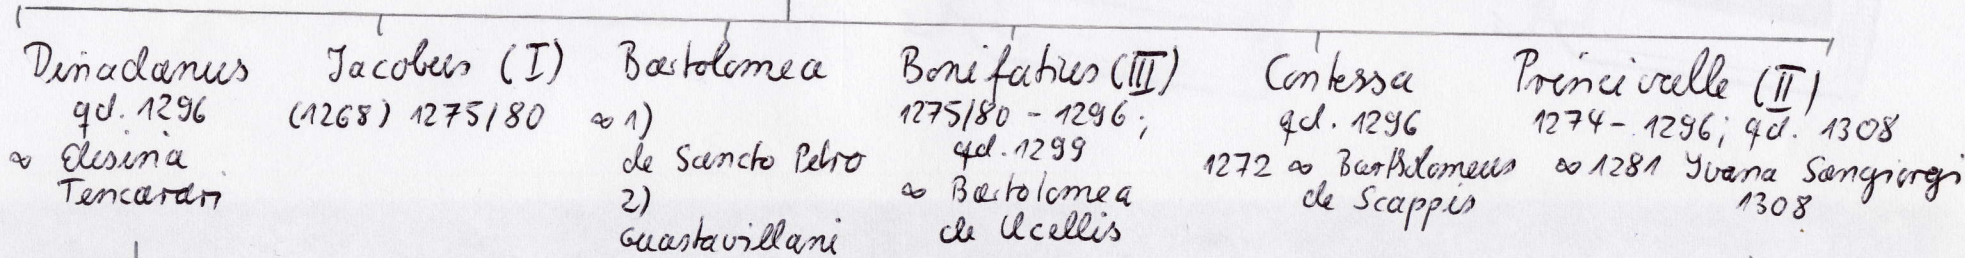 Dinadanus
qd. 1296
∞ Elisina
Tencarari
Jacobus (I)
(1268) 1275/80
Bartolomea
∞ 1)
de Sancto Petro
2)
Guastavillani
Bonifatius (III)
1275/80 - 1296;
qd. 1299
∞ Bartolomea
de Ucellis
Contessa
qd. 1296
1272 ∞ Bartholomeus
de Scappis
Princivalle (II)
1274 - 1296; qd. 1308
∞ 1281 Yvana Sangiorgi
1308